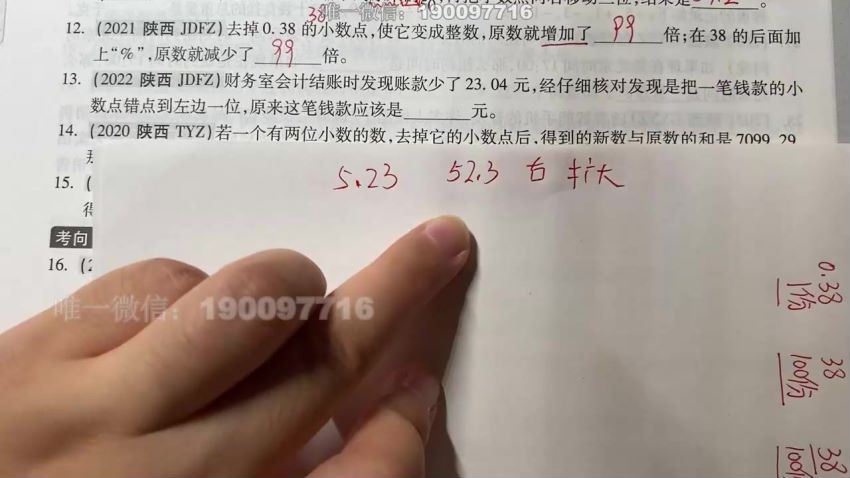 12. (2021 陕西 JDFZ) 去掉 0.38 的小数点,使它变成整数,原数就增加了 99 倍;在 38 的后面加
38
上“%”,原数就减少了 99 倍。
13. (2022 陕西 JDFZ) 财务室会计结账时发现账款少了 23.04 元,经仔细核对发现是把一笔钱款的小
数点错点到左边一位,原来这笔钱款应该是______元。
14. (2020 陕西 TYZ) 若一个有两位小数的数,去掉它的小数点后,得到的新数与原数的和是 7099.29
15. (
得
考向
16. (2
5.23 52.3 右 扩大
0.38
1份
38
100份
38
100份
唯一微信:190097716
唯一微信:190097716